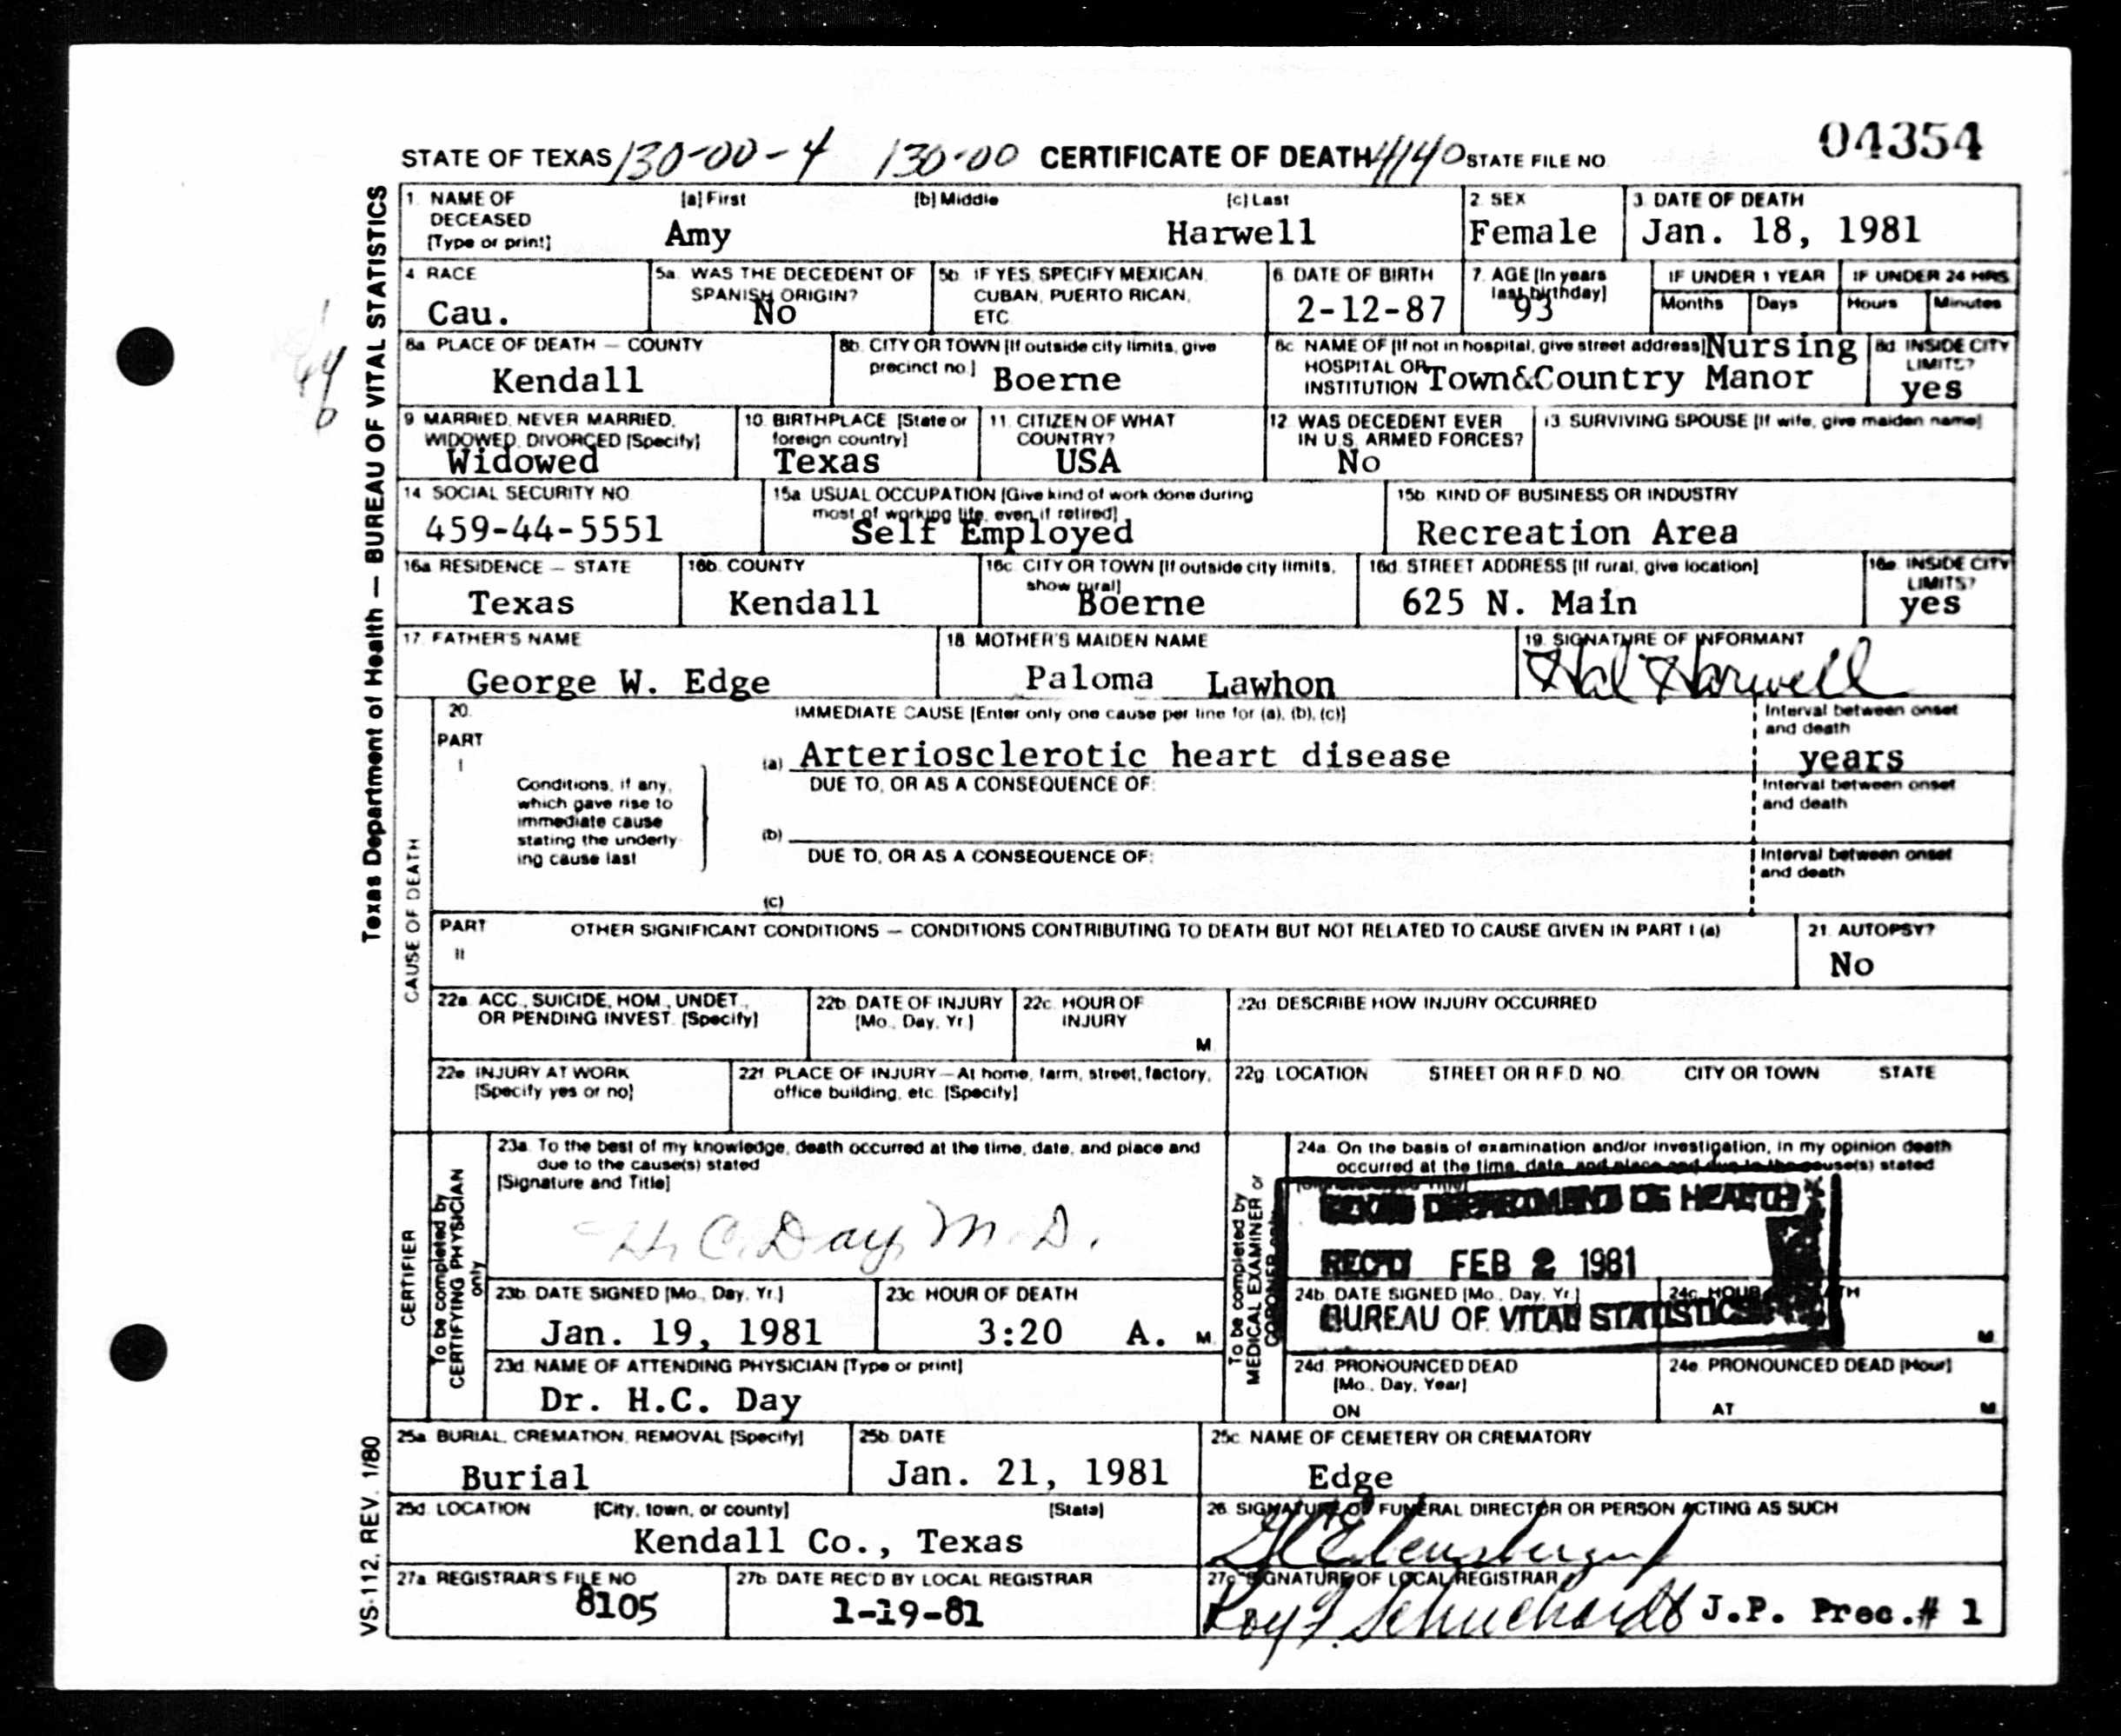 04354
STATE OF TEXAS 130-00-4 130-00 CERTIFICATE OF DEATH 4140 STATE FILE NO.
Texas Department of Health — BUREAU OF VITAL STATISTICS
1. NAME OF DECEASED [Type or print] [a] First [b] Middle [c] Last
Amy Harwell
2. SEX
Female
3. DATE OF DEATH
Jan. 18, 1981
4. RACE
Cau.
5a. WAS THE DECEDENT OF SPANISH ORIGIN?
No
5b. IF YES, SPECIFY MEXICAN, CUBAN, PUERTO RICAN, ETC.
6. DATE OF BIRTH
2-12-87
7. AGE [In years last birthday]
93
IF UNDER 1 YEAR
Months Days
IF UNDER 24 HRS.
Hours Minutes
8a. PLACE OF DEATH — COUNTY
Kendall
8b. CITY OR TOWN [If outside city limits, give precinct no.]
Boerne
8c. NAME OF [If not in hospital, give street address] HOSPITAL OR INSTITUTION
Nursing
Town&Country Manor
8d. INSIDE CITY LIMITS?
yes
9. MARRIED, NEVER MARRIED, WIDOWED, DIVORCED [Specify]
Widowed
10. BIRTHPLACE [State or foreign country]
Texas
11. CITIZEN OF WHAT COUNTRY?
USA
12. WAS DECEDENT EVER IN U.S. ARMED FORCES?
No
13. SURVIVING SPOUSE [If wife, give maiden name]
14. SOCIAL SECURITY NO.
459-44-5551
15a. USUAL OCCUPATION [Give kind of work done during most of working life, even if retired]
Self Employed
15b. KIND OF BUSINESS OR INDUSTRY
Recreation Area
16a. RESIDENCE — STATE
Texas
16b. COUNTY
Kendall
16c. CITY OR TOWN [If outside city limits, show rural]
Boerne
16d. STREET ADDRESS [If rural, give location]
625 N. Main
16e. INSIDE CITY LIMITS?
yes
17. FATHER'S NAME
George W. Edge
18. MOTHER'S MAIDEN NAME
Paloma Lawhon
19. SIGNATURE OF INFORMANT
Hal Harwell
CAUSE OF DEATH
20. PART I
IMMEDIATE CAUSE [Enter only one cause per line for (a), (b), (c)]
Conditions, if any, which gave rise to immediate cause stating the underlying cause last
(a) Arteriosclerotic heart disease
Interval between onset and death
years
DUE TO, OR AS A CONSEQUENCE OF:
(b)
Interval between onset and death
DUE TO, OR AS A CONSEQUENCE OF:
(c)
Interval between onset and death
PART II
OTHER SIGNIFICANT CONDITIONS — CONDITIONS CONTRIBUTING TO DEATH BUT NOT RELATED TO CAUSE GIVEN IN PART I (a)
21. AUTOPSY?
No
22a. ACC., SUICIDE, HOM., UNDET., OR PENDING INVEST. [Specify]
22b. DATE OF INJURY [Mo., Day, Yr.]
22c. HOUR OF INJURY
M.
22d. DESCRIBE HOW INJURY OCCURRED
22e. INJURY AT WORK [Specify yes or no]
22f. PLACE OF INJURY—At home, farm, street, factory, office building, etc. [Specify]
22g. LOCATION STREET OR R.F.D. NO. CITY OR TOWN STATE
CERTIFIER
To be completed by CERTIFYING PHYSICIAN only
23a. To the best of my knowledge, death occurred at the time, date, and place and due to the cause(s) stated
[Signature and Title]
H. C. Day, M.D.
23b. DATE SIGNED [Mo., Day, Yr.]
Jan. 19, 1981
23c. HOUR OF DEATH
3:20 A. M.
23d. NAME OF ATTENDING PHYSICIAN [Type or print]
Dr. H.C. Day
To be completed by MEDICAL EXAMINER or CORONER only
24a. On the basis of examination and/or investigation, in my opinion death occurred at the time, date, and place and due to the cause(s) stated
TEXAS DEPARTMENT OF HEALTH
REC'D FEB 2 1981
BUREAU OF VITAL STATISTICS
24b. DATE SIGNED [Mo., Day, Yr.]
24c. HOUR OF DEATH
M.
24d. PRONOUNCED DEAD [Mo., Day, Year]
ON
24e. PRONOUNCED DEAD [Hour]
AT M.
25a. BURIAL, CREMATION, REMOVAL [Specify]
Burial
25b. DATE
Jan. 21, 1981
25c. NAME OF CEMETERY OR CREMATORY
Edge
25d. LOCATION [City, town, or county] [State]
Kendall Co., Texas
26. SIGNATURE OF FUNERAL DIRECTOR OR PERSON ACTING AS SUCH
27a. REGISTRAR'S FILE NO.
8105
27b. DATE REC'D BY LOCAL REGISTRAR
1-19-81
27c. SIGNATURE OF LOCAL REGISTRAR
Roy F. Schuchardt J.P. Prec.# 1
VS-112, REV. 1/80